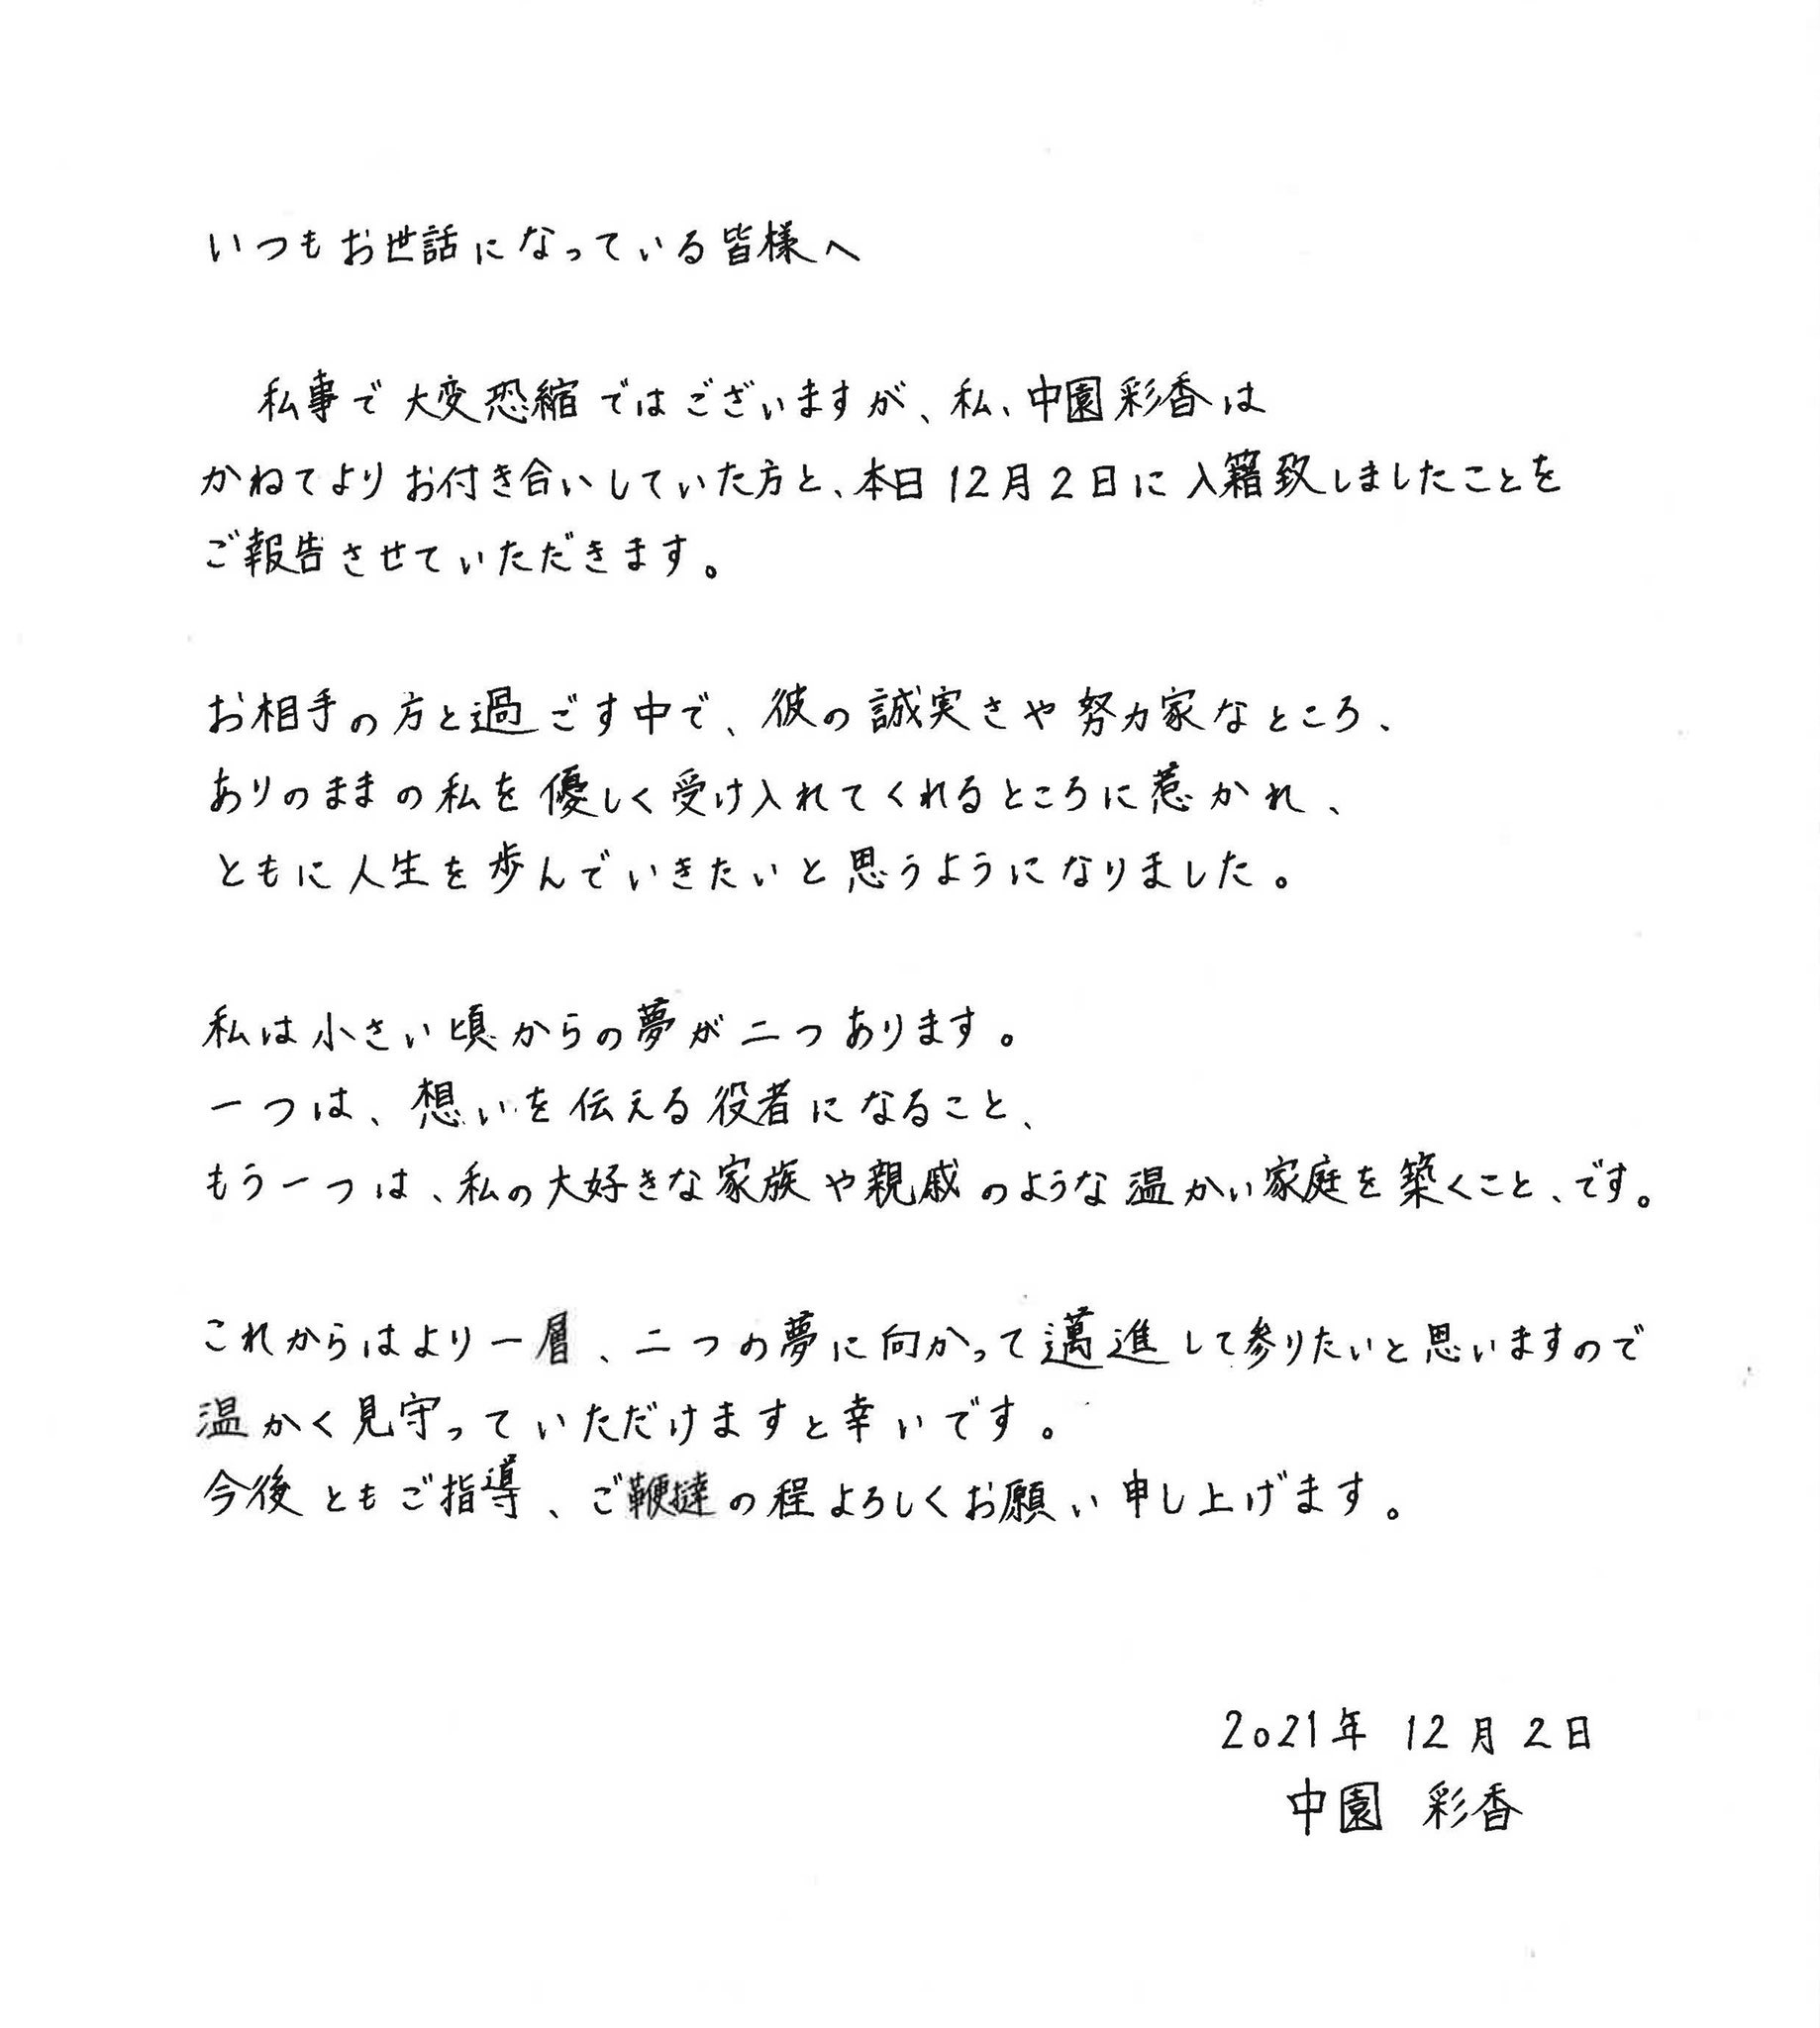 いつもお世話になっている皆様へ
私事で大変恐縮ではございますが、私、中園彩香は
かねてよりお付き合いしていた方と、本日12月2日に入籍致しましたことを
ご報告させていただきます。
お相手の方と過ごす中で、彼の誠実さや努力家なところ、
ありのままの私を優しく受け入れてくれるところに惹かれ、
ともに人生を歩んでいきたいと思うようになりました。
私は小さい頃からの夢が二つあります。
一つは、想いを伝える役者になること、
もう一つは、私の大好きな家族や親戚のような温かい家庭を築くこと、です。
これからはより一層、二つの夢に向かって邁進して参りたいと思いますので
温かく見守っていただけますと幸いです。
今後ともご指導、ご鞭撻の程よろしくお願い申し上げます。
2021年 12月2日
中園 彩香